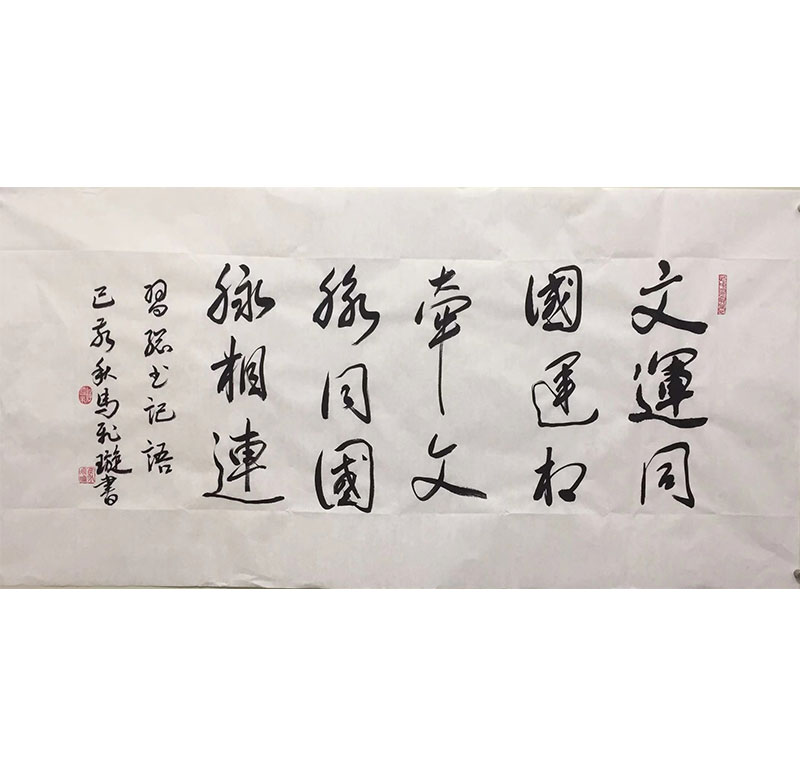 文運同
國運相
牽文
脉同國
脉相連
習總書記語
己亥秋馬飛璇書